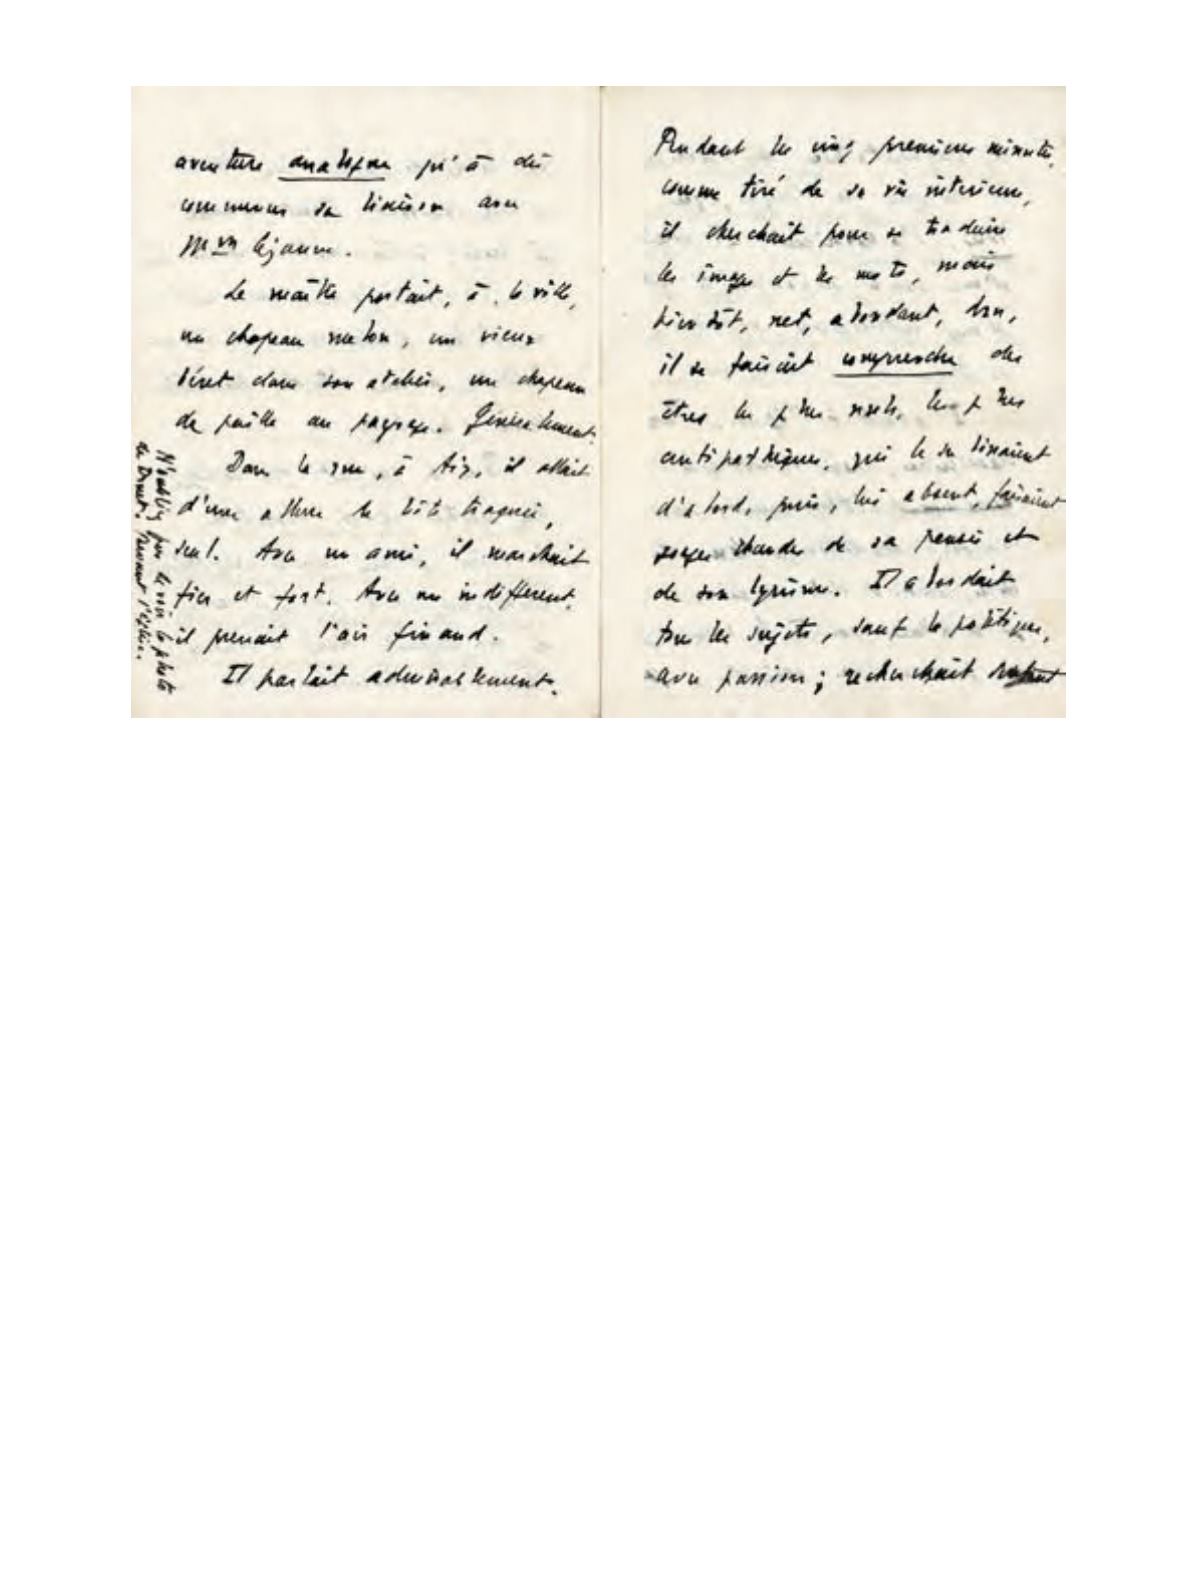 aventure analogue qu'a dû
commencer sa liaison avec
Mme Lejeune.
Le maître portait, à la ville,
un chapeau melon, un vieux
béret dans son atelier, un chapeau
de paille au paysage. Généralement.
Dans la rue, à Aix, il allait
d'une allure de bête traquée,
seul. Avec un ami, il marchait
fier et fort. Avec un indifférent,
il prenait l'air finaud.
Il parlait admirablement.
N'oubliez pas de voir la photo
de Druet, devant l'église.
Pendant les cinq premières minutes,
comme tiré de sa vie intérieure,
il cherchait pour se traduire
les images et les mots, mais
bientôt, net, abondant, bon,
il se faisait comprendre des
êtres les plus rustres, les plus
antipathiques, qui le
d'abord, puis, lui absent, faisaient
de sa pensée et
de son lyrisme. Il abordait
tous les sujets, sauf la politique,
avec passion ; recherchait surtout